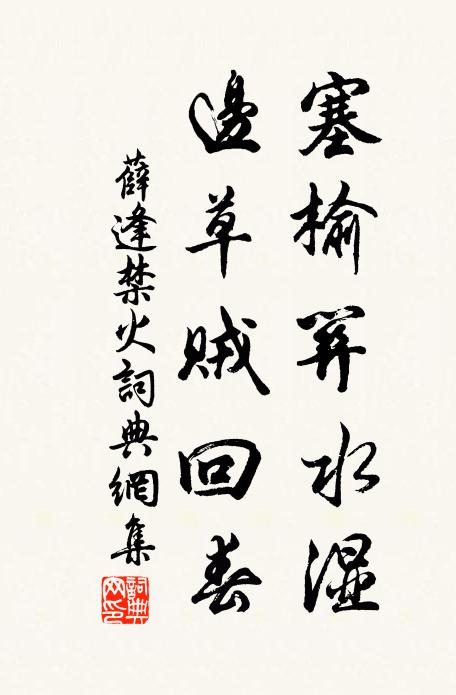 塞榆關水湿
邊草賊回春
薛逢禁火詞典網集
詞典
网印